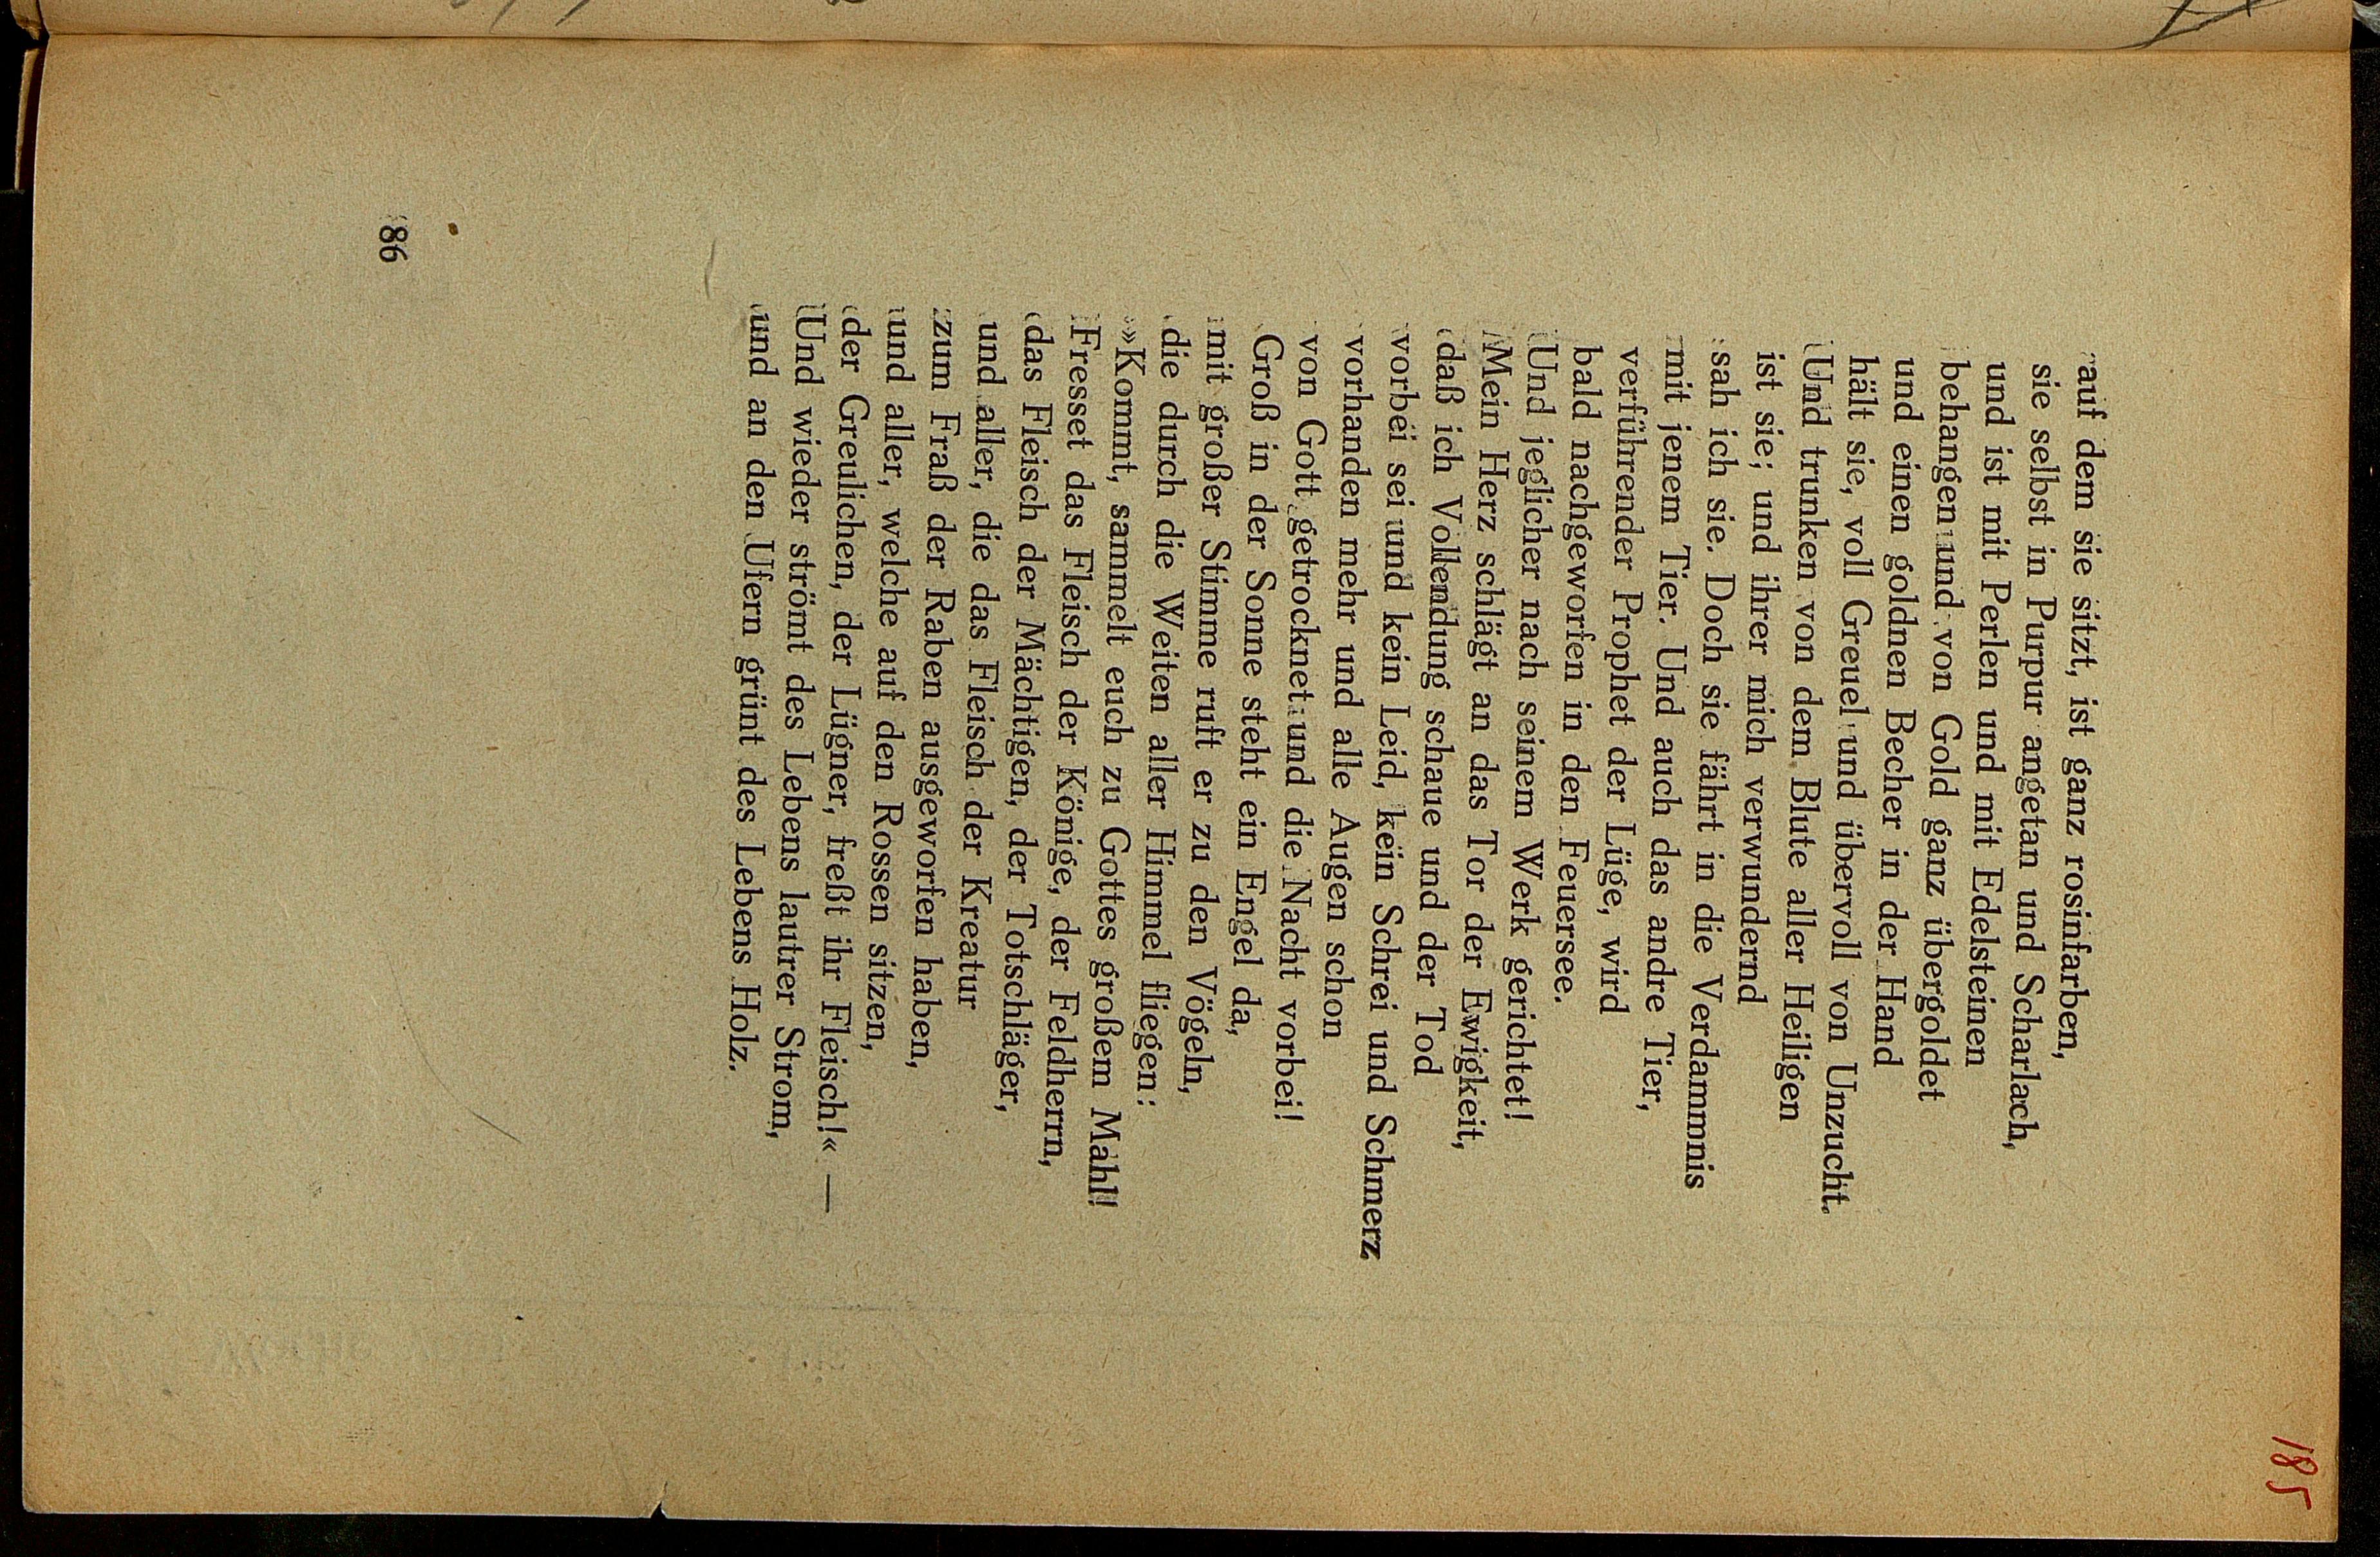 185
auf dem sie sitzt, ist ganz rosinfarben,
sie selbst in Purpur angetan und Scharlach,
und ist mit Perlen und mit Edelsteinen
behangen und von Gold ganz übergoldet
und einen goldnen Becher in der Hand
hält sie, voll Greuel und übervoll von Unzucht.
Und trunken von dem Blute aller Heiligen
ist sie; und ihrer mich verwundernd
sah ich sie. Doch sie fährt in die Verdammnis
mit jenem Tier. Und auch das andre Tier,
verführender Prophet der Lüge, wird
bald nachgeworfen in den Feuersee.
Und jeglicher nach seinem Werk gerichtet!
Mein Herz schlägt an das Tor der Ewigkeit,
daß ich Vollendung schaue und der Tod
vorbei sei und kein Leid, kein Schrei und Schmerz
vorhanden mehr und alle Augen schon
von Gott getrocknet und die Nacht vorbei!
Groß in der Sonne steht ein Engel da,
mit großer Stimme ruft er zu den Vögeln,
die durch die Weiten aller Himmel fliegen:
»Kommt, sammelt euch zu Gottes großem Mahl!
Fresset das Fleisch der Könige, der Feldherrn,
das Fleisch der Mächtigen, der Totschläger,
und aller, die das Fleisch der Kreatur
zum Fraß der Raben ausgeworfen haben,
und aller, welche auf den Rossen sitzen,
der Greulichen, der Lügner, freßt ihr Fleisch!« —
Und wieder strömt des Lebens lautrer Strom,
und an den Ufern grünt des Lebens Holz.
86